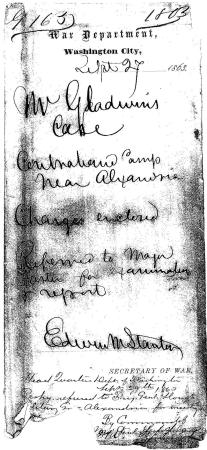 G 163 1863
War Department,
Washington City,
Sept 27 1863.
Mr Gladwin's
Case
Contraband Camp
Near Alexandria
Charges enclosed
Referred to Major
for examination
& report
Edwin M Stanton
SECRETARY OF WAR.
Head Quarters Dept of Washington
Sept 29th 1863
referred to Brig Genl
Alexandria for
By Command of